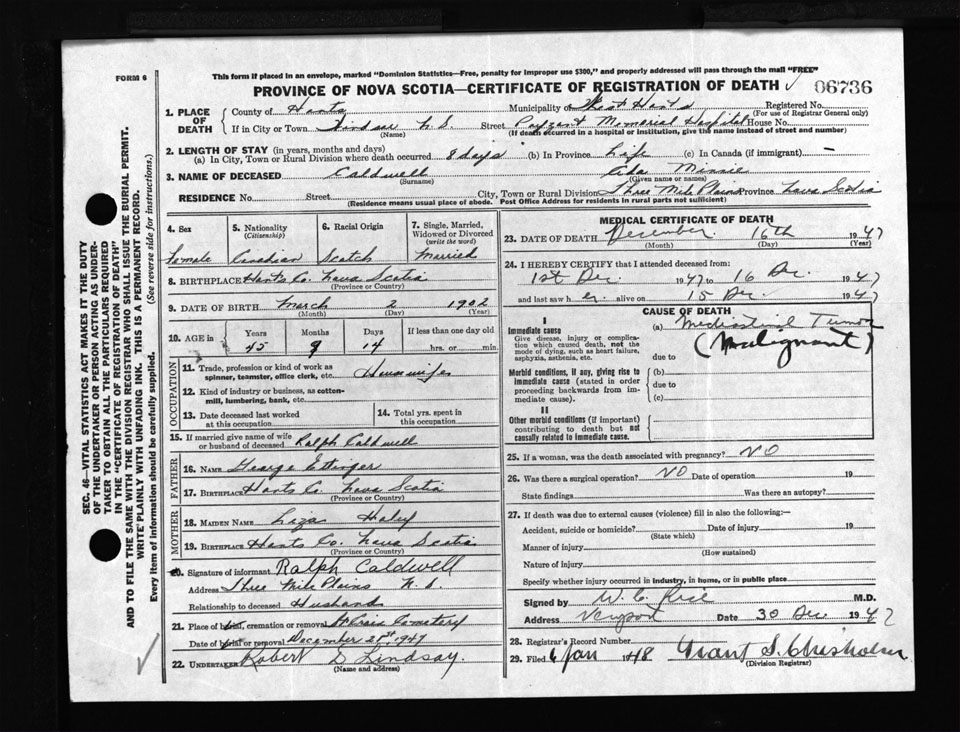 FORM 6
This form if placed in an envelope, marked "Dominion Statistics—Free, penalty for improper use $300," and properly addressed will pass through the mail "FREE"
PROVINCE OF NOVA SCOTIA—CERTIFICATE OF REGISTRATION OF DEATH
06736
1. PLACE OF DEATH
County of Hants Municipality of West Hants Registered No.
(For use of Registrar General only)
If in City or Town Windsor N.S. Street Payzant Memorial Hospital House No.
(Name) (If death occurred in a hospital or institution, give the name instead of street and number)
2. LENGTH OF STAY (in years, months and days)
(a) In City, Town or Rural Division where death occurred 8 days (b) In Province Life (c) In Canada (if immigrant) —
3. NAME OF DECEASED Caldwell Ada Minnie
(Surname) (Given name or names)
RESIDENCE No. Street City, Town or Rural Division Three Mile Plains Province Nova Scotia
(Residence means usual place of abode. Post Office Address for residents in rural parts not sufficient)
4. Sex
Female
5. Nationality
(Citizenship)
Canadian
6. Racial Origin
Scotch
7. Single, Married, Widowed or Divorced
(write the word)
Married
8. BIRTHPLACE Hants Co. Nova Scotia
(Province or Country)
9. DATE OF BIRTH March 2 1902
(Month) (Day) (Year)
10. AGE in Years Months Days If less than one day old
45 9 14 hrs. or min.
OCCUPATION
11. Trade, profession or kind of work as spinner, teamster, office clerk, etc. Housewife
12. Kind of industry or business, as cotton-mill, lumbering, bank, etc.
13. Date deceased last worked at this occupation
14. Total yrs. spent in this occupation
15. If married give name of wife or husband of deceased Ralph Caldwell
FATHER
16. NAME George Ettinger
17. BIRTHPLACE Hants Co. Nova Scotia
(Province or Country)
MOTHER
18. MAIDEN NAME Liza Haley
19. BIRTHPLACE Hants Co. Nova Scotia
(Province or Country)
20. Signature of informant Ralph Caldwell
Address Three Mile Plains N.S.
Relationship to deceased Husband
21. Place of burial, cremation or removal Cemetery
Date of burial or removal December 1947
22. UNDERTAKER Robert D Lindsay.
(Name and address)
MEDICAL CERTIFICATE OF DEATH
23. DATE OF DEATH December 16th 1947
(Month) (Day) (Year)
24. I HEREBY CERTIFY that I attended deceased from:
1st Dec. 1947 to 16 Dec. 1947
and last saw her alive on 15 Dec. 1947
CAUSE OF DEATH
I
Immediate cause
Give disease, injury or complication which caused death, not the mode of dying, such as heart failure, asphyxia, asthenia, etc.
(a) Mediastinal Tumor
(Malignant)
due to
Morbid conditions, if any, giving rise to immediate cause (stated in order proceeding backwards from immediate cause).
(b)
due to
(c)
II
Other morbid conditions (if important) contributing to death but not causally related to immediate cause.
25. If a woman, was the death associated with pregnancy? NO
26. Was there a surgical operation? NO Date of operation 19
State findings Was there an autopsy?
27. If death was due to external causes (violence) fill in also the following:—
Accident, suicide or homicide? Date of injury 19
(State which)
Manner of injury
(How sustained)
Nature of injury
Specify whether injury occurred in industry, in home, or in public place
Signed by W. C. M.D.
Address Date 30 Dec 1947
28. Registrar's Record Number
29. Filed 6 Jan 1948 Grant S. Chisholm
(Division Registrar)
SEC. 46—VITAL STATISTICS ACT MAKES IT THE DUTY
OF THE UNDERTAKER OR PERSON ACTING AS UNDER-
TAKER TO OBTAIN ALL THE PARTICULARS REQUIRED
IN THE "CERTIFICATE OF REGISTRATION OF DEATH"
AND TO FILE THE SAME WITH THE DIVISION REGISTRAR WHO SHALL ISSUE THE BURIAL PERMIT.
WRITE PLAINLY WITH UNFADING INK. THIS IS A PERMANENT RECORD.
Every item of information should be carefully supplied. (See reverse side for instructions.)